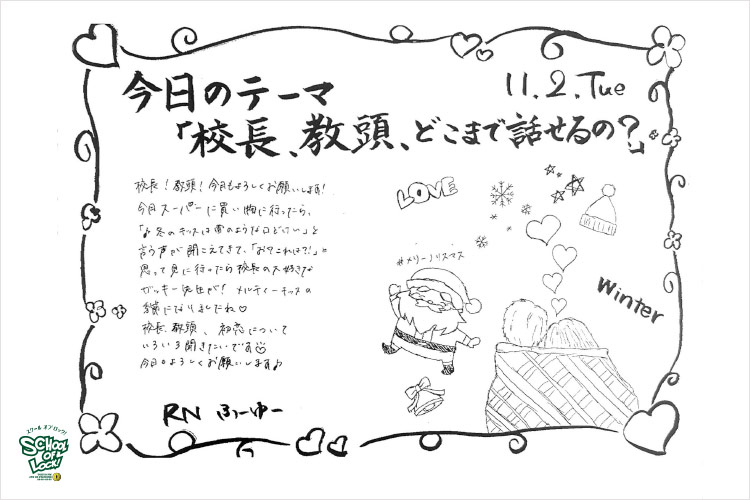 今日のテーマ
11.2.Tue
「校長、教頭、どこまで話せるの?」
校長!教頭!今日もよろしくお願いします!
今日スーパーに買い物に行ったら、
「♪冬のキッスは雪のような口どけ〜」と
言う声が聞こえてきて、「おや?これは?!」と
思って見に行ったら校長の大好きな
ガッキー先生が!メルティーキッスの
季節になりましたね♡
校長、教頭、初恋について
いろいろ聞きたいです
今日もよろしくお願いします♪
RN ふーゆー
LOVE
#メリークリスマス
Winter
スクール オブ ロック!
SCHOOL
OF
LOCK!